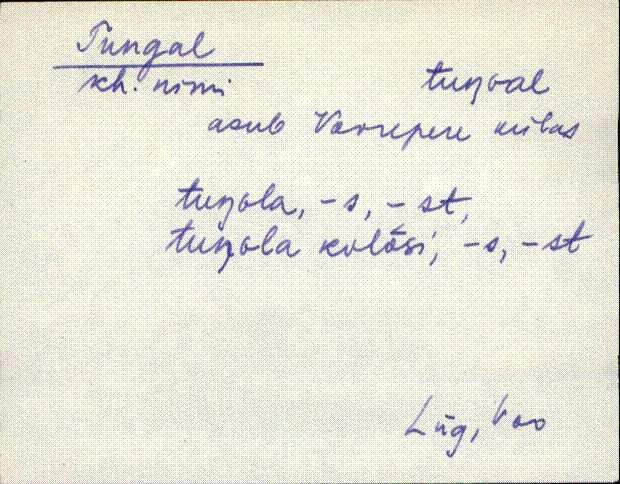 Tungal
kh. nimi
tuŋŋal
asub Voorepere külas
tuŋŋla, -s, -st,
tuŋŋla kolàsi, -s, -st
Lüg, Voo